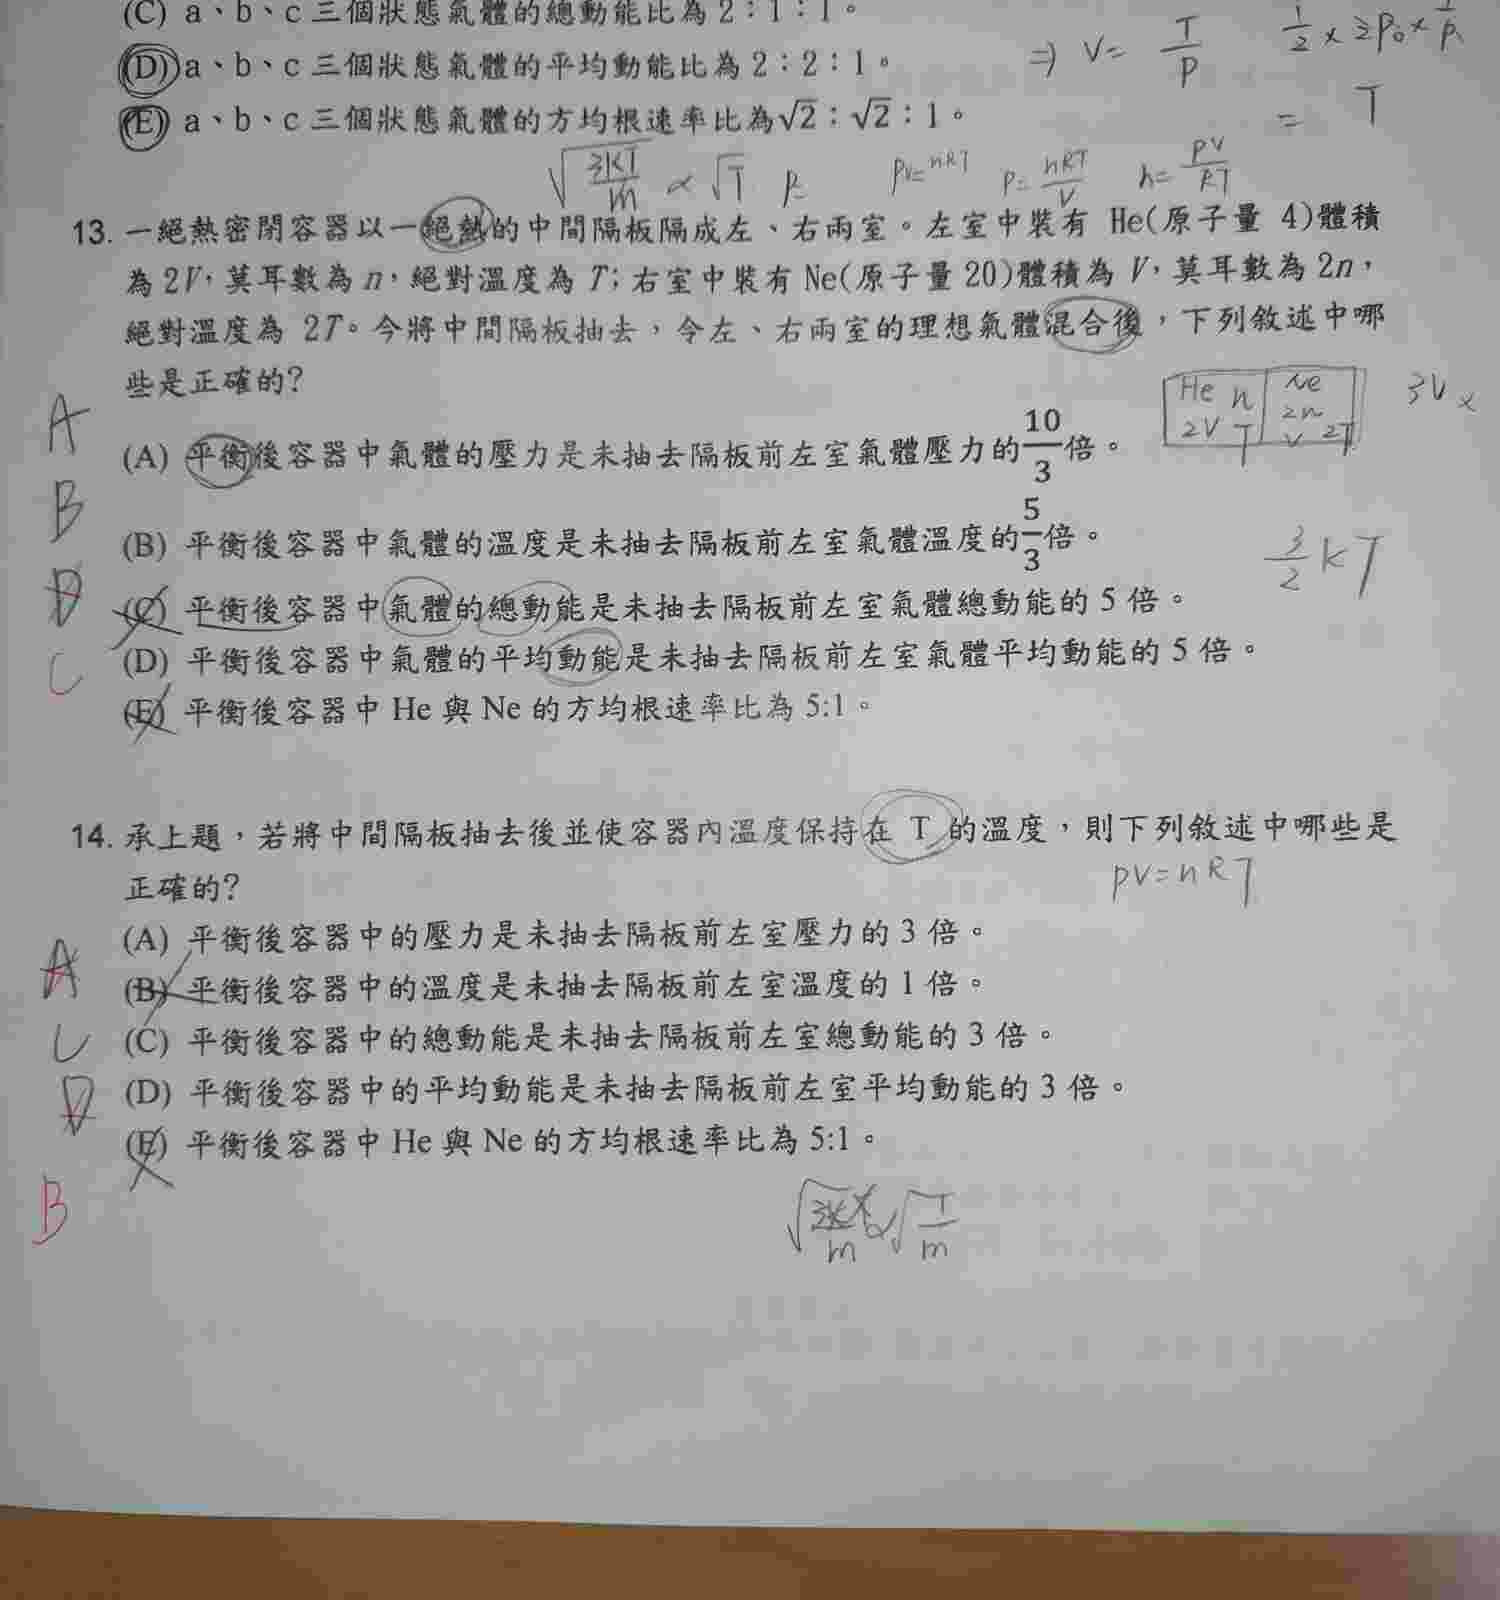 (C) a、b、c 三個狀態氣體的總動能比為 2：1：1。
(D) a、b、c 三個狀態氣體的平均動能比為 2：2：1。
(E) a、b、c 三個狀態氣體的方均根速率比為√2：√2：1。
⇒ V= T/P
1/2 ×
= T
√(3KT/m) ∝ √T
PV=nRT P=nRT/V n=PV/RT
13. 一絕熱密閉容器以一絕熱的中間隔板隔成左、右兩室。左室中裝有 He(原子量 4)體積
為 2V，莫耳數為 n，絕對溫度為 T；右室中裝有 Ne(原子量 20)體積為 V，莫耳數為 2n，
絕對溫度為 2T。今將中間隔板抽去，令左、右兩室的理想氣體混合後，下列敘述中哪
些是正確的?
He n 2V T
Ne 2n V 2T
3V ×
A
(A) 平衡後容器中氣體的壓力是未抽去隔板前左室氣體壓力的10/3倍。
B
(B) 平衡後容器中氣體的溫度是未抽去隔板前左室氣體溫度的5/3倍。
3/2 KT
D
(C) 平衡後容器中氣體的總動能是未抽去隔板前左室氣體總動能的 5 倍。
C
(D) 平衡後容器中氣體的平均動能是未抽去隔板前左室氣體平均動能的 5 倍。
(E) 平衡後容器中 He 與 Ne 的方均根速率比為 5:1。
14. 承上題，若將中間隔板抽去後並使容器內溫度保持在 T 的溫度，則下列敘述中哪些是
正確的?
PV=nRT
A
(A) 平衡後容器中的壓力是未抽去隔板前左室壓力的 3 倍。
(B) 平衡後容器中的溫度是未抽去隔板前左室溫度的 1 倍。
C
(C) 平衡後容器中的總動能是未抽去隔板前左室總動能的 3 倍。
D
(D) 平衡後容器中的平均動能是未抽去隔板前左室平均動能的 3 倍。
(E) 平衡後容器中 He 與 Ne 的方均根速率比為 5:1。
B
√(3KT/m) ∝ √(T/m)